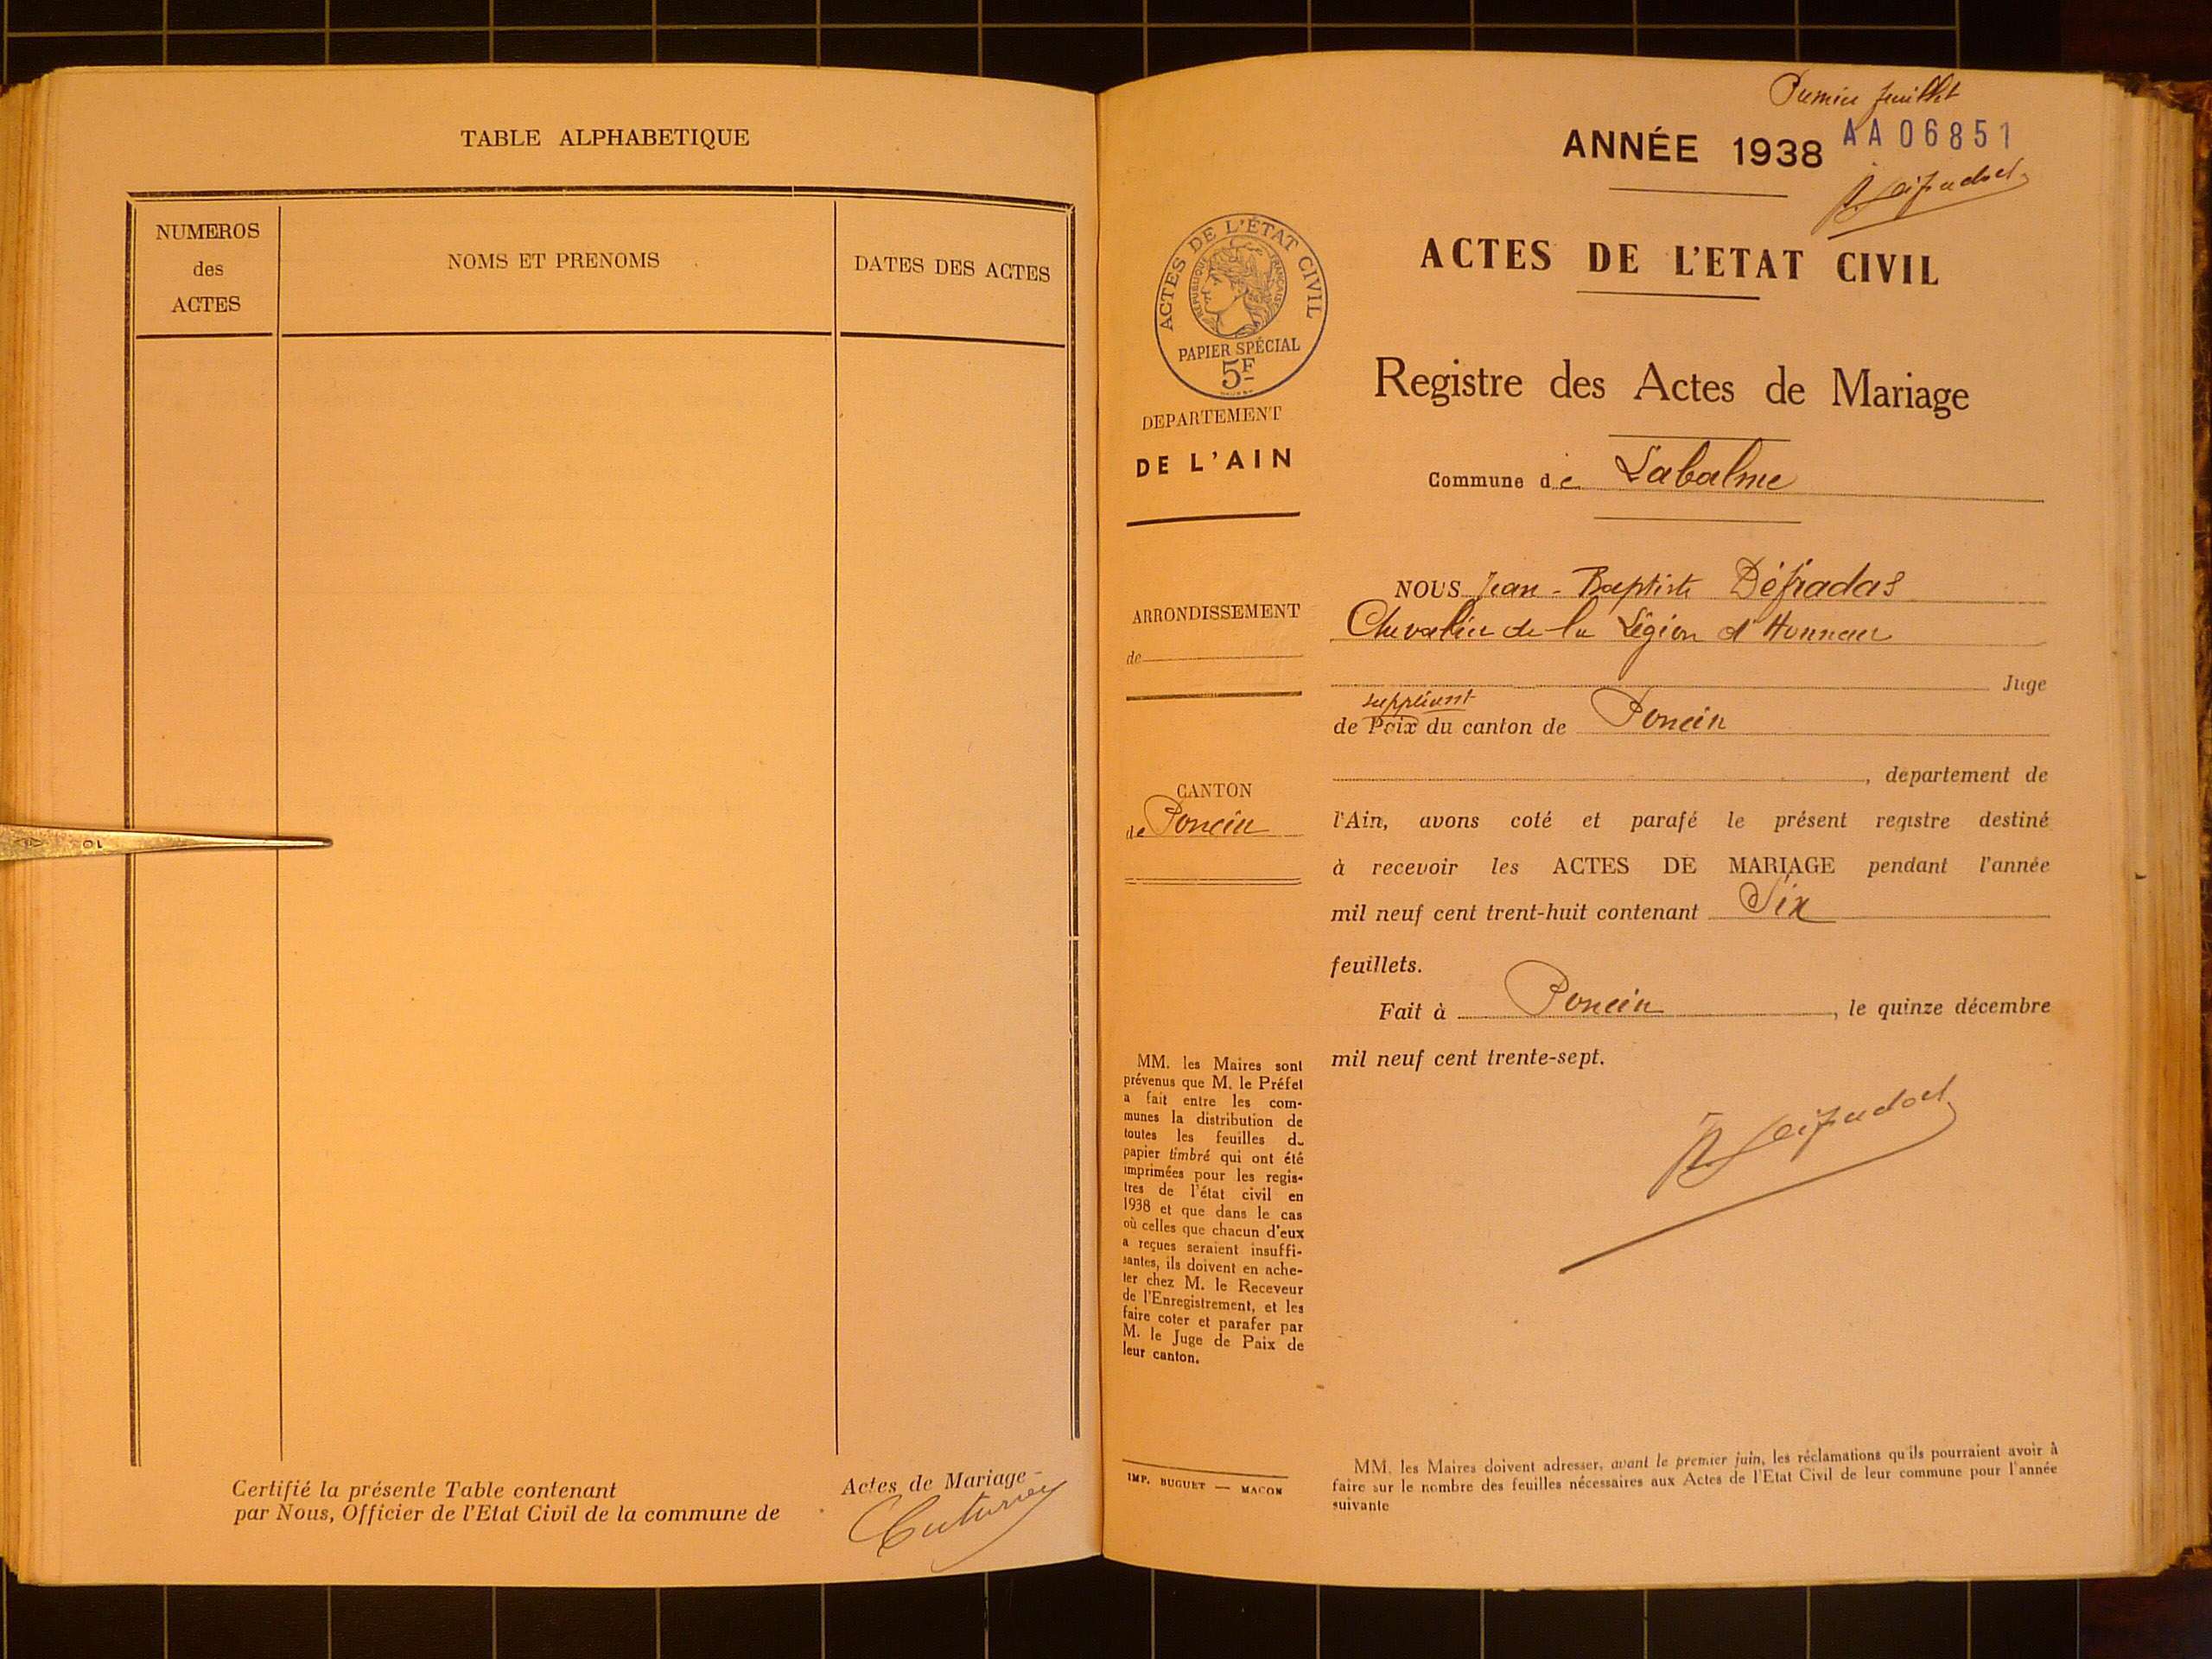 TABLE ALPHABETIQUE
NUMEROS
des
ACTES
NOMS ET PRENOMS
DATES DES ACTES
Certifié la présente Table contenant
par Nous, Officier de l'Etat Civil de la commune de
Actes de Mariage
Premier feuillet
ANNÉE 1938
AA06851
ACTES DE L'ETAT CIVIL
ACTES DE L'ÉTAT CIVIL
RÉPUBLIQUE FRANÇAISE
PAPIER SPÉCIAL
5F
Registre des Actes de Mariage
DEPARTEMENT
DE L'AIN
Commune de Labalme
ARRONDISSEMENT
de
CANTON
de Poncin
NOUS Jean-Baptiste Défradas
Chevalier de la Légion d'Honneur
Juge
suppléant
de Paix du canton de Poncin
, département de
l'Ain, avons coté et parafé le présent registre destiné
à recevoir les ACTES DE MARIAGE pendant l'année
mil neuf cent trent-huit contenant Six
feuillets.
Fait à Poncin, le quinze décembre
mil neuf cent trente-sept.
MM. les Maires sont
prévenus que M. le Préfet
a fait entre les com-
munes la distribution de
toutes les feuilles du
papier timbré qui ont été
imprimées pour les regis-
tres de l'état civil en
1938 et que dans le cas
où celles que chacun d'eux
a reçues seraient insuffi-
santes, ils doivent en ache-
ter chez M. le Receveur
de l'Enregistrement, et les
faire coter et parafer par
M. le Juge de Paix de
leur canton.
IMP. BUGUET — MACON
MM. les Maires doivent adresser, avant le premier juin, les réclamations qu'ils pourraient avoir à
faire sur le nombre des feuilles nécessaires aux Actes de l'Etat Civil de leur commune pour l'année
suivante